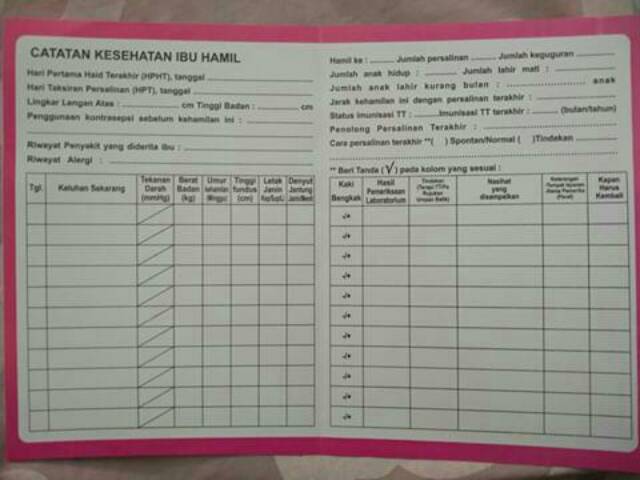 CATATAN KESEHATAN IBU HAMIL
Hari Pertama Haid Terakhir (HPHT), tanggal
Hari Taksiran Persalinan (HPT), tanggal
Lingkar Lengan Atas : cm Tinggi Badan : cm
Penggunaan kontrasepsi sebelum kehamilan ini :
Riwayat Penyakit yang diderita ibu :
Riwayat Alergi :
Tgl.
Keluhan Sekarang
Tekanan Darah (mmHg)
Berat Badan (kg)
Umur Kehamilan (Minggu)
Tinggi fundus (cm)
Letak Janin
Denyut Jantung
Hamil ke : Jumlah persalinan Jumlah keguguran
Jumlah anak hidup : Jumlah lahir mati :
Jumlah anak lahir kurang bulan : anak
Jarak kehamilan ini dengan persalinan terakhir :
Status imunisasi TT : Imunisasi TT terakhir : (bulan/tahun)
Penolong Persalinan Terakhir :
Cara persalinan terakhir **( ) Spontan/Normal ( )Tindakan
** Beri Tanda (√) pada kolom yang sesuai :
Kaki Bengkak
Hasil Pemeriksaan Laboratorium
Nasihat yang disampaikan
Kapan Harus Kembali
-/+
-/+
-/+
-/+
-/+
-/+
-/+
-/+
-/+
-/+
-/+